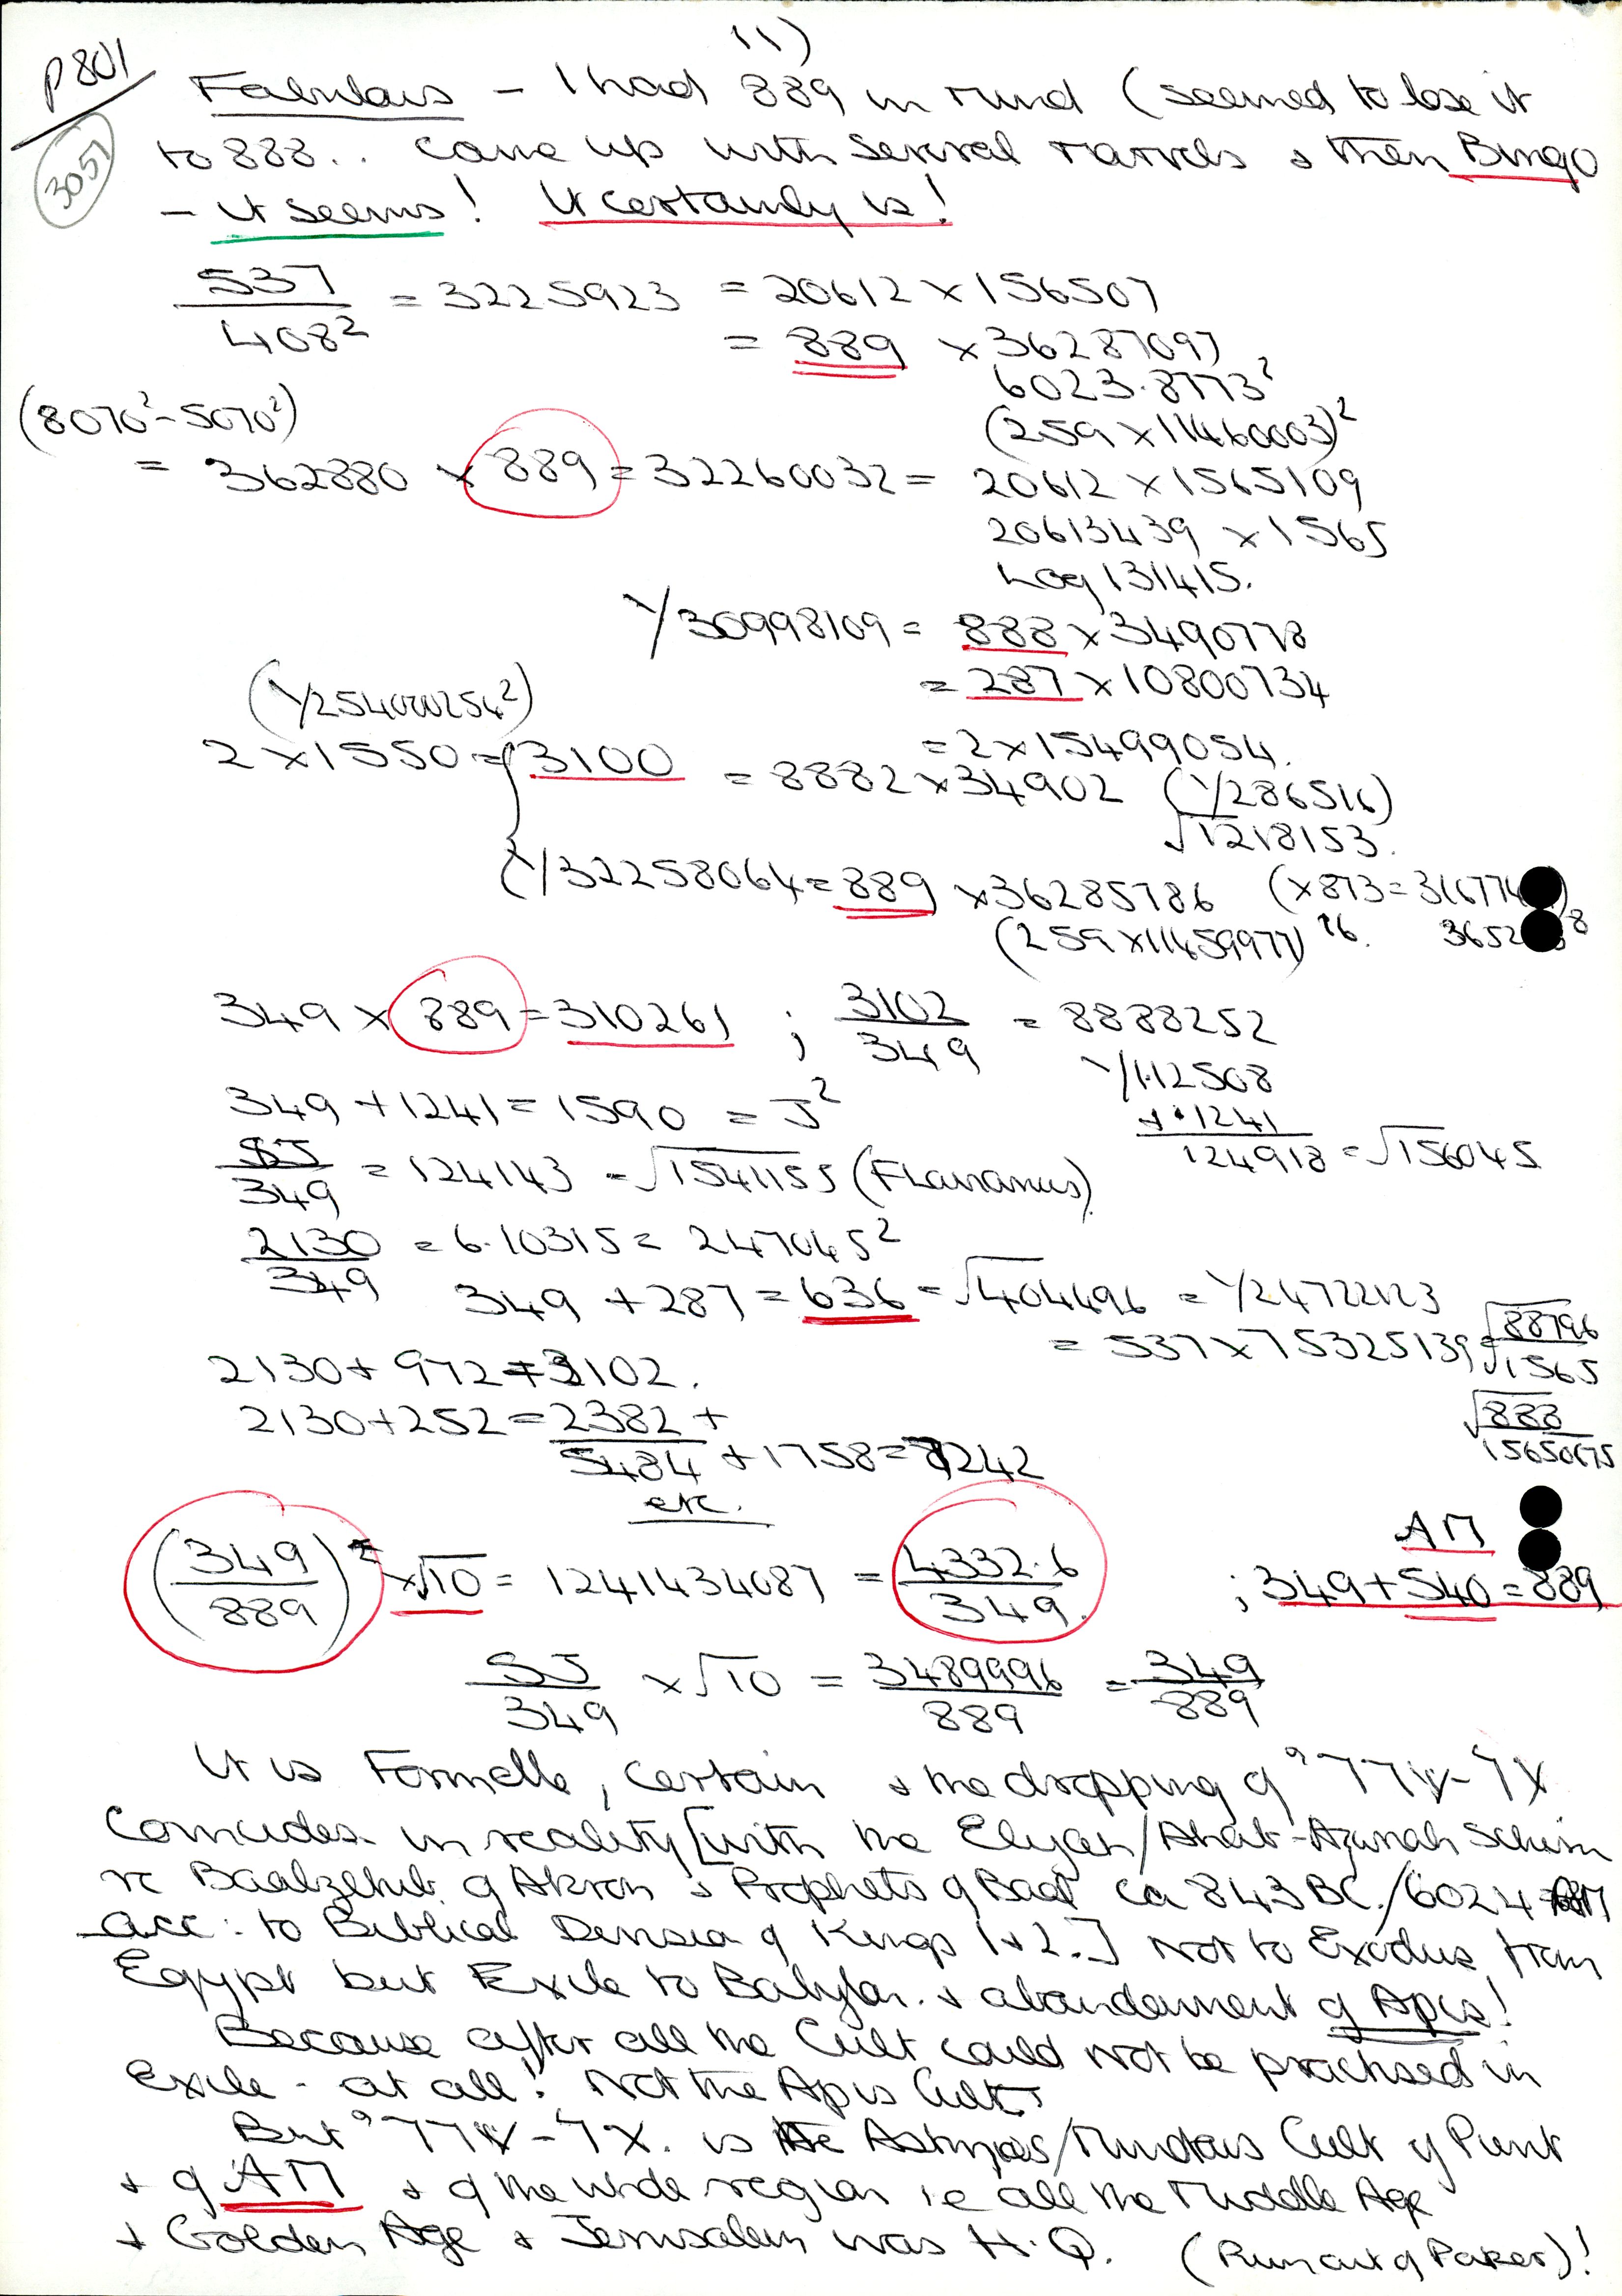 11)
P801
3051
Fabulous - I had 889 in mind (seemed to lose it
to 888.. came up with several marvels & then Bingo
- it seems! It certainly is!
537/408² = 3225923 = 20612 × 156507
= 889 × 36287097
6023.8773²
(8070² - 5070²) (259 × 11460003)²
= 362880 × 889 = 32260032 = 20612 × 1565109
20613439 × 1565
Log 131415.
1/30998109 = 888 × 3490778
= 287 × 10800734
(1/254000254²) = 2 × 15499054.
2 × 1550 = 3100 = 8882 × 34902 (1/286516)
√1218153.
(1/32258064 = 889 × 36285786 (×873 = 316774
(259 × 11459977)² 3652
349 × 889 = 310261 ; 3102/349 = 8888252
1/112508
349 + 1241 = 1590 = J² + 1241
SJ/349 = 124143 = √1541155 (Flavianus) 124918 = √156045
2130/349 = 6.10315 = 247045²
349 + 287 = 636 = √404496 = 1/24722123
= 537 × 75325139 = √88796/√1565
2130 + 972 = 3102.
2130 + 252 = 2382 + √888/15650675
5484 + 1758 = 7242
etc.
(349/889)² × √10 = 1241434087 = 4332.6/349. ; 349 + 540 = 889
AM
SJ/349 × √10 = 3489996/889 = 349/889
It is Formelle, certain & the dropping of
Comcudes in reality [with the Elijah/Ahab - Schism
re Baalzebub of Akron & Prophets of Baal ca 843 BC./6024 AM
acc: to Biblical Version of Kings 1 + 2.] not to Exodus from
Egypt but Exile to Babylon. & abandonment of Apis!
Because after all the Cult could not be practised in
Exile - at all! Not the Apis Cult
But is the Cult of Punt
+ of AM & of the wide region ie all the Middle Age
+ Golden Age & Jerusalem was H.Q. (Run out of Paper)!